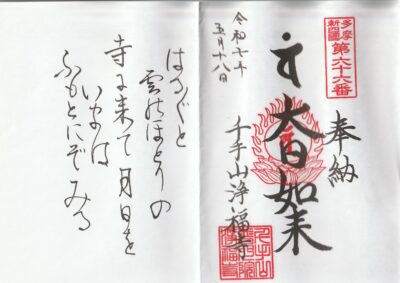 多摩
新四國
第六十六番
奉納
大日如来
千手山浄福寺
令和七年
五月十八日
はる〲と
雲のほとりの
寺に来て月日を
いまは
ふもとにぞみる